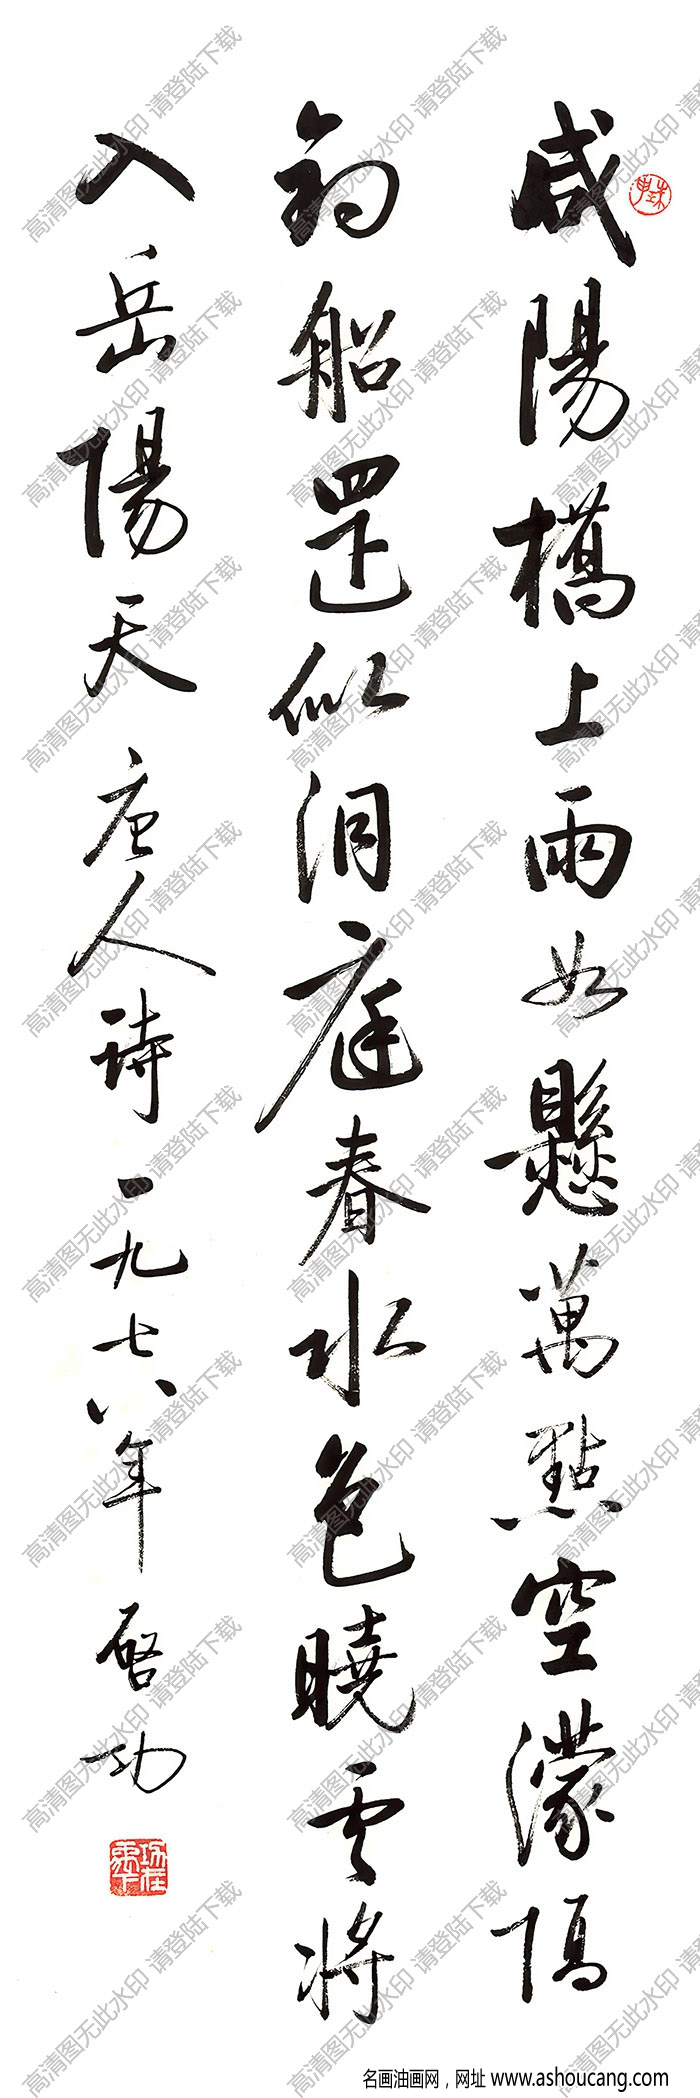 咸陽橋上雨如懸萬點空濛隔
釣船罡似洞庭春水色曉雲將
入岳陽天 唐人詩 一九七八年 啓功
名画油画网，网址 www.ashoucang.com
高清图无此水印 请登陆下载